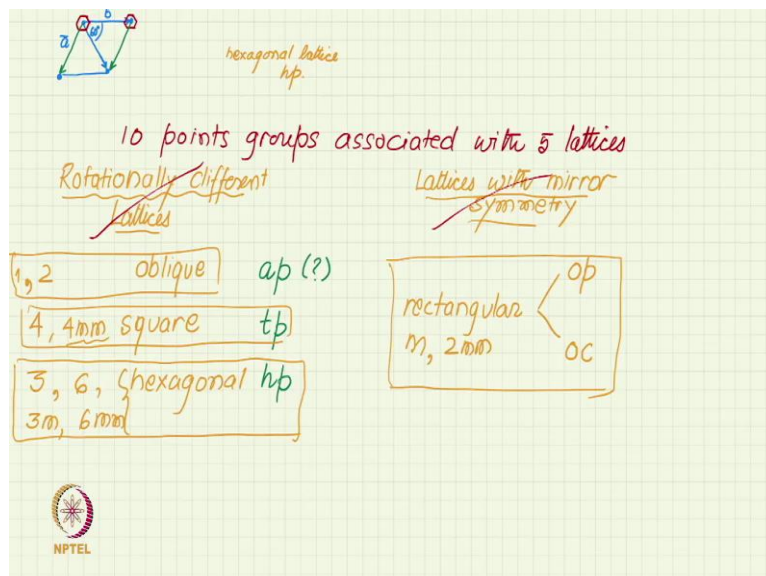 b
a
hexagonal lattice
hp.
10 points groups associated with 5 lattices
Rotationally different
Lattices
Lattices with mirror
symmetry
1, 2 oblique ap (?)
4, 4mm square tp
3, 6, hexagonal hp
3m, 6mm
rectangular
m, 2mm
op
oc
NPTEL